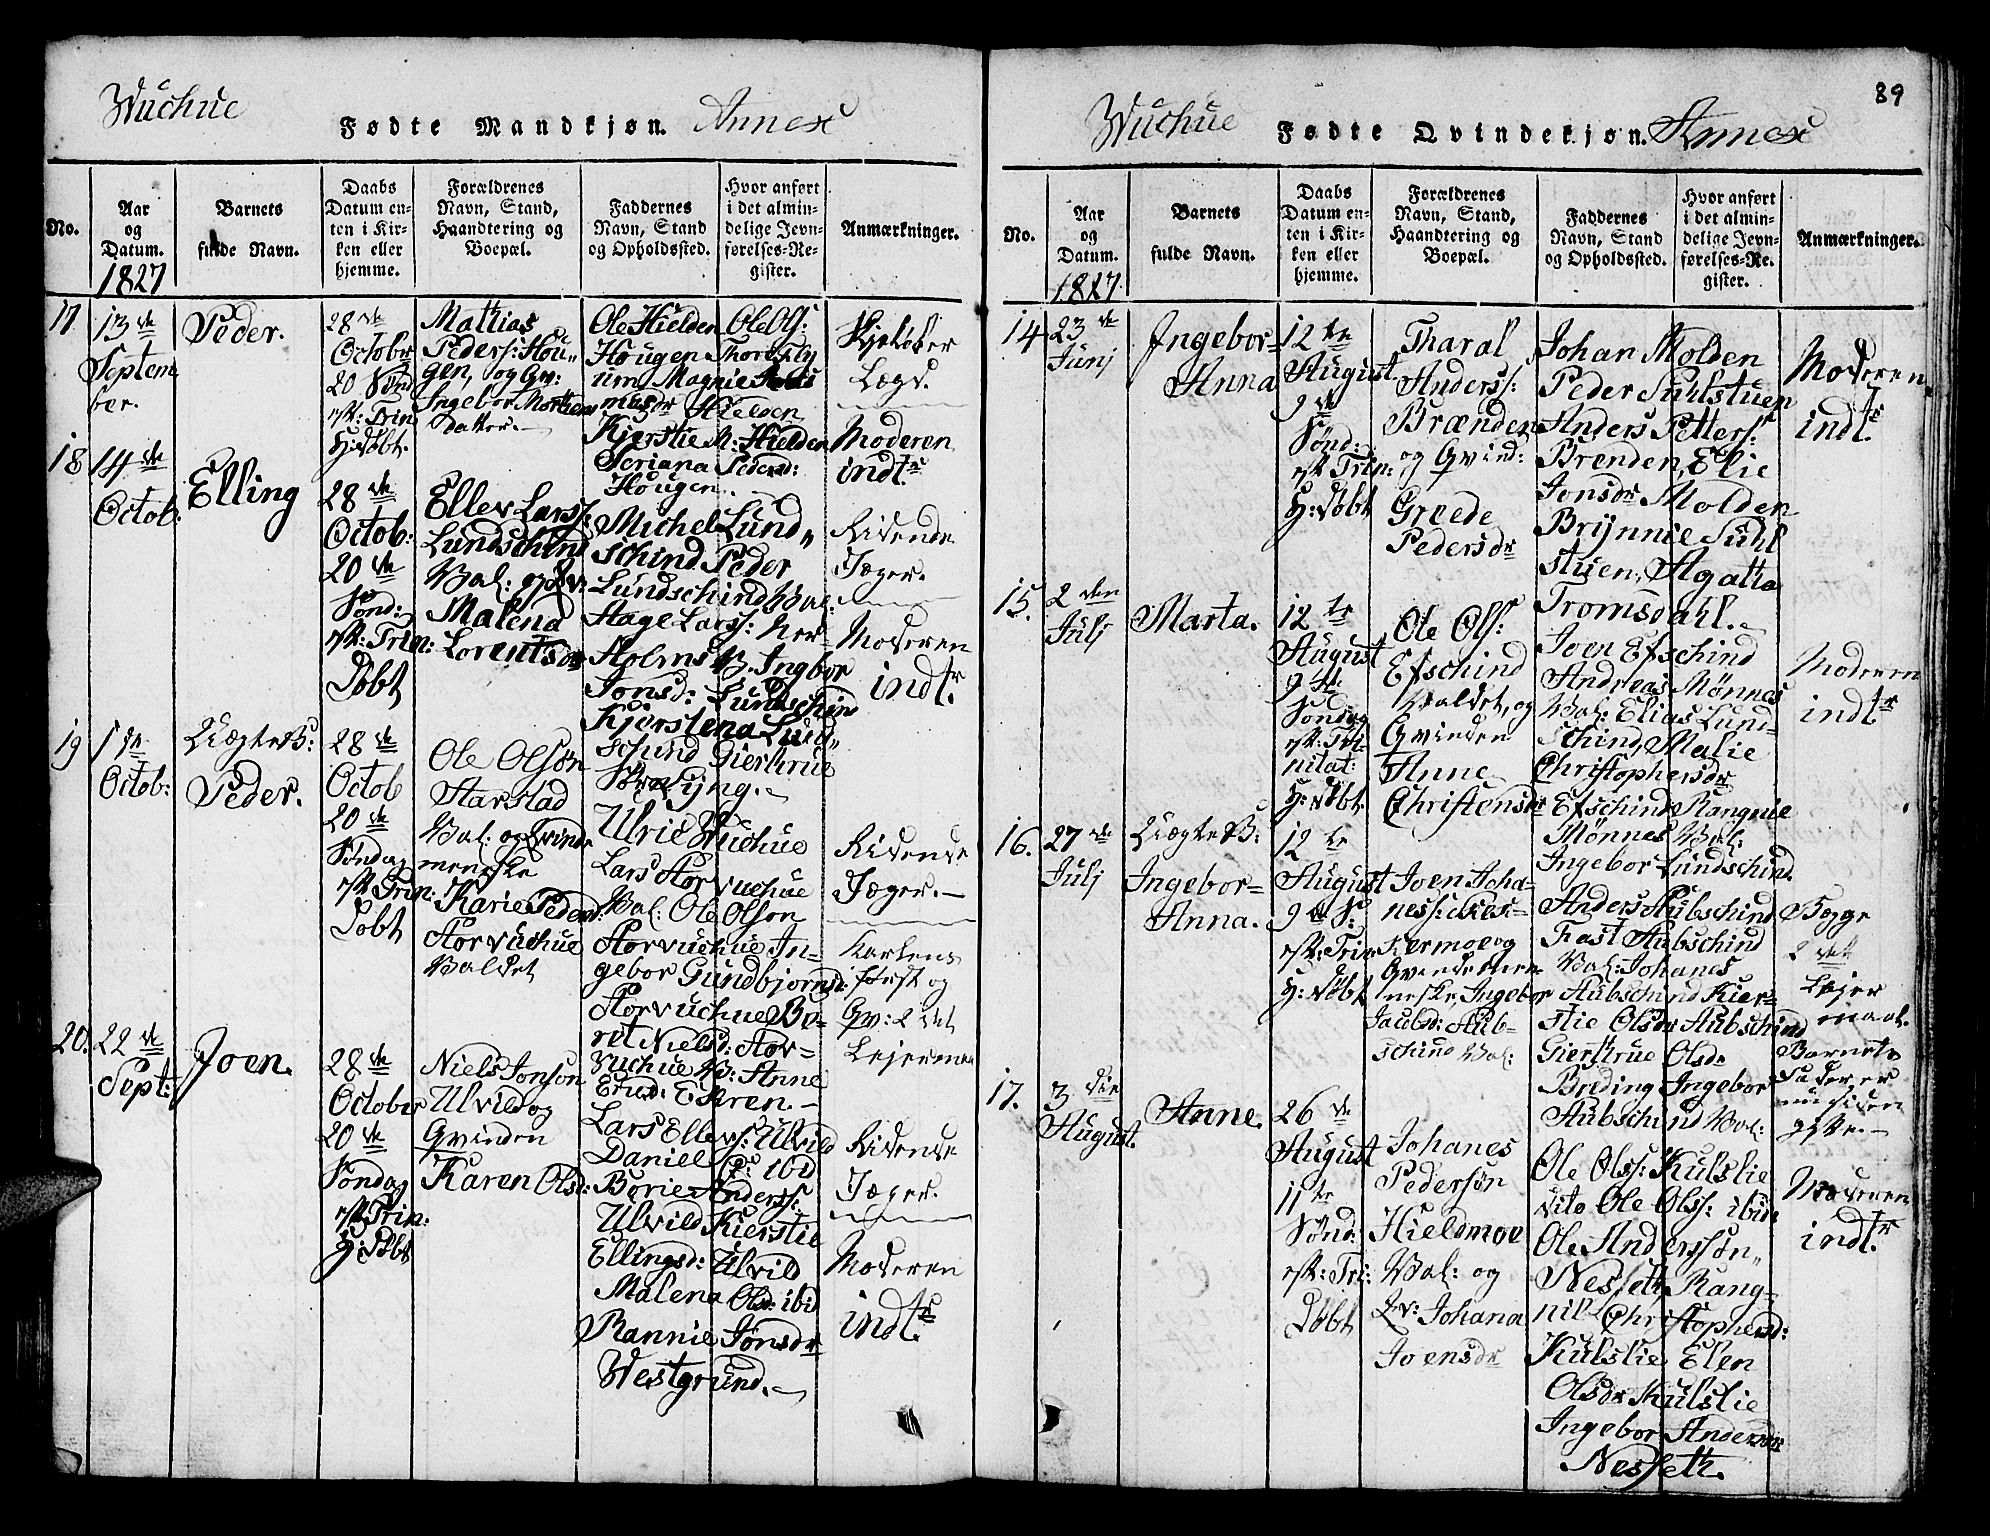 Wuchue
Fødte Mandkjøn. Annex
No.
Aar og Datum. 1827
Barnets fulde Navn.
Daabs Datum enten i Kirken eller hjemme.
Forældrenes Navn, Stand, Haandtering og Boepæl.
Faddernes Navn, Stand og Opholdssted.
Hvor anført i det almindelige Jevnførelses-Register.
Anmærkninger.
17
13de
Septem
ber.
Peder.
28de
October
20 Sønd
eft: Trin
H: Døbt.
Mathias
Peders: Hou„
gen, og Gv:
Ingebor Mortens
datter.
Ole Hielden Ole Ols:
Hougen
um Magnie
Hielden
Kjerstie M: Hielden
Seriana Pedersd:
Hougen.
Lægd.
Moderen
indtr
18
14de
Octob:
Elling
28de
Octob:
20de
Sønd:
eft: Trin:
Døbt
Ellev Larss:
Lundschind
Val: og Qv:
Malena
Lorentsdr
Michel Lund„
schind Peder
Lundschind Val:
Hage Larss: Ner-
Holms V. Ingbor
Jonsd: Lundschind
Kjerstena Lund„
schind Gierthrue
Ridende
Jæger.
Moderen
indtr
19
1de
Octob:
Uægte B:
Peder.
28de
Octob
20de
Søndag
eft: Trin:
Døbt
Ole Olson
Starstad
Val: og Qvinde
menske
Karie Pedersd:
Storvuchue
Valdet
Ulric Wuchue
Lars Storvuchue
Val: Ole Olson
Storvuchue In-
gebor Gundbjornsd:
Storvuchue Be-
ret Nielsd: Stor-
Vuchue V: Anne
Ericsd: Ekren.
Ridende
Jæger.
Karlens
først og
Qv: 2det
Lejermaal
20.
22de
Sept:
Joen.
28de
October
20de
Søndag
eft: Trin:
H: Døbt
Niels Jonson
Ulvild og
Qvinden
Karen Olsd:
Lars Ellevs: Ulvild
Daniel ibid
Borie Anderss:
Ulvild Kierstie
Ellingsd: Ulvild
Malena Olsd: ibid
Rannie Jonsdr
Westgrund.
Ridende
Jæger.
Moderen
indtr
89
Wuchue
Fødte Qvindekjøn. Annex
No.
Aar og Datum. 1827
Barnets fulde Navn.
Daabs Datum enten i Kirken eller hjemme.
Forældrenes Navn, Stand, Haandtering og Boepæl.
Faddernes Navn, Stand og Opholdssted.
Hvor anført i det almindelige Jevnførelses-Register.
Anmærkninger.
14
23de
Junj
Ingebor-
Anna
12te
August
9de
Sønd:
eft: Trin:
H: Døbt
Tharal
Anderss:
Brænden
og Qvind:
Greede
Pedersdr
Johan Molden
Peder Suhlstuen
Anders Petters:
Brenden, Elie
Jonsdr Molden
Brijnnie Suhl
stuen, Agatha
Tromsdahl.
Moderen
indtr
15.
2den
Julj
Marta.
12te
August
9de
Søndag
eft: Tri-
nitat:
H: Døbt.
Ole Ols:
Efschind
Valdet, og
Qvinden
Anne
Christensdr
Joen Efschind
Andreas Mønnes
Val: Elias Lund-
schind, Malie
Christophersdr
Efschind Rangnie
Mønnes Val:
Ingebor Lundschind
Moderen
indtr
16.
27de
Julj
Uægte B:
Ingebor-
Anna.
12te
August
9de S:
eft: Trin
H: Døbt
Joen Joha-
ness:
Kermoe og
Qvindemen
neske, Ingebor
Jacobsd: Aub-
schind Val:
Anders Aubschind
Fast Aubschind
Val: Johanes
Aubschind Kier-
stie Olsdr Aubschind
Gierthrue Olsdr
Breding Ingebor
Aubschind Val:
Begge
2det
Lejer
maal.
Barnets
Fader er
nu siden
gifte.
17.
3die
August.
Anne.
26de
August
11te
Sønd:
eft: Tri:
Døbt
Johanes
Pederson
Hieldmoe
Val: og
Qv: Johana
Joensdr
Ole Olss: Kulslie
Vito Ole Olss: ibid
Ole Andersson„
Nesseth, Rang-
nil Christophersd:
Kulslie, Elen
Olsdr Kulslie
Ingebor Andersdr
Nesseth.
Moderen
indtr